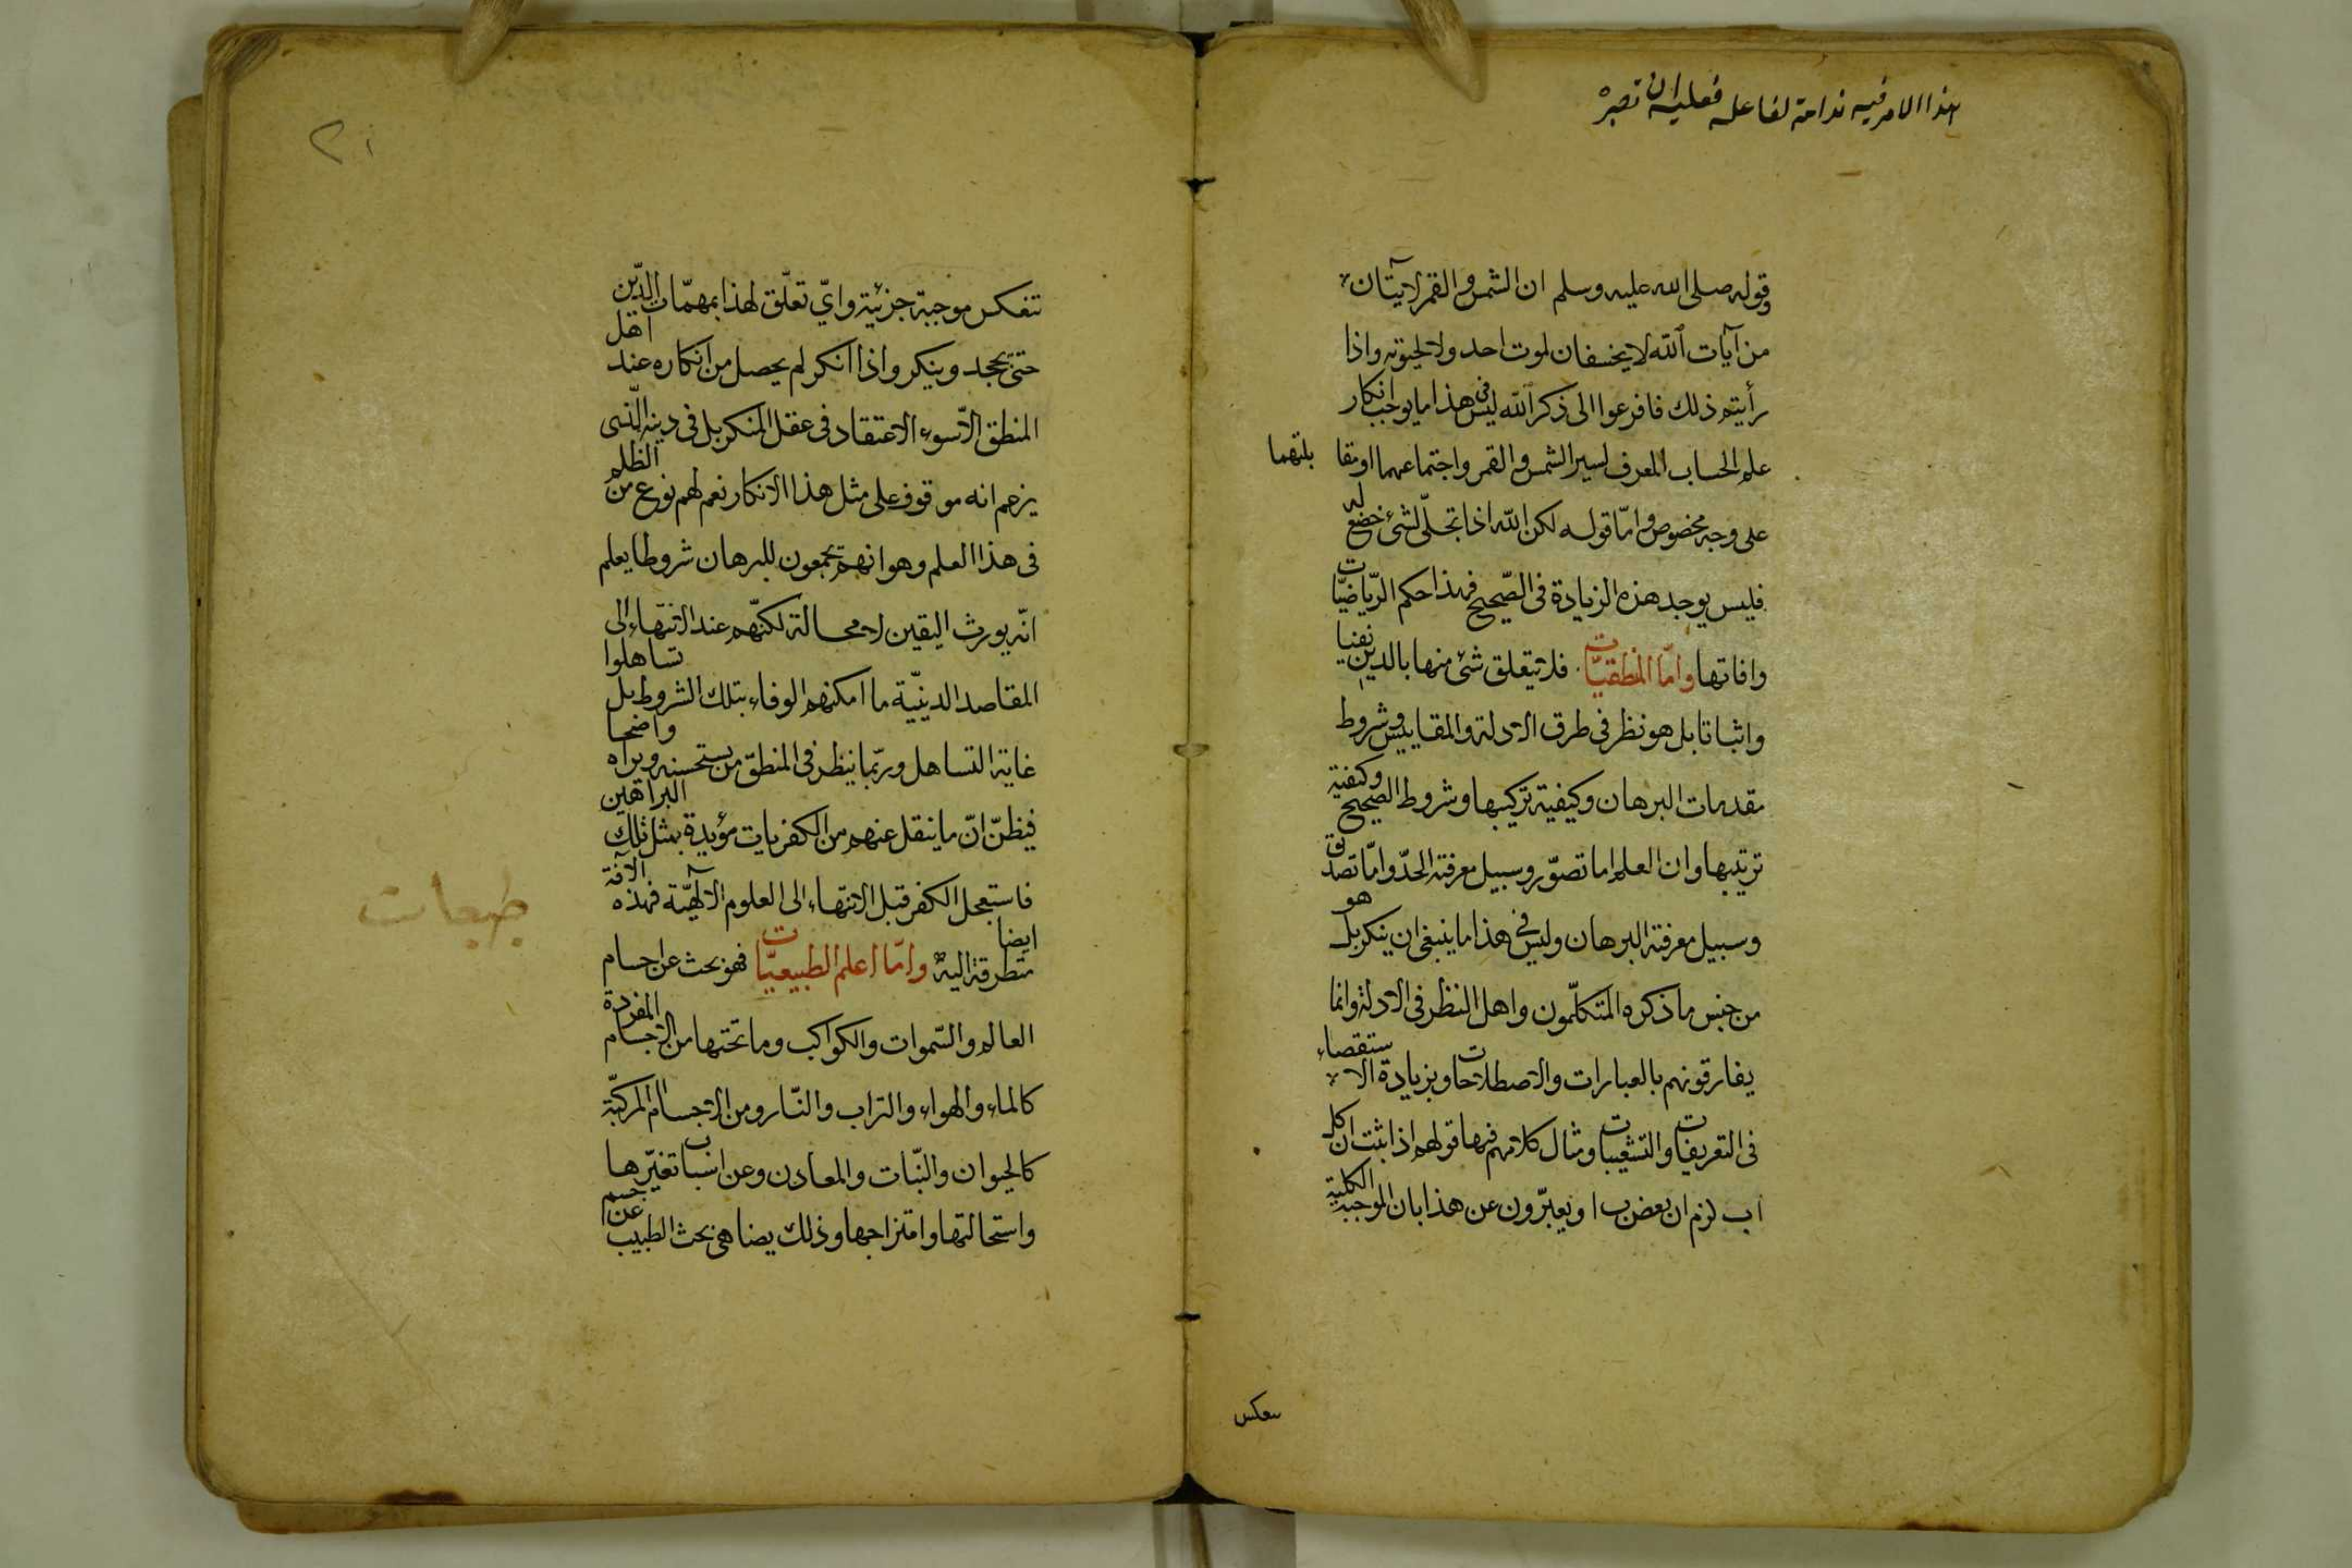 هذا الامر فيه ندامة لفاعله فعليه ان تصبر
وقوله صلى الله عليه وسلم ان الشمس والقمر لآيتان
من آيات الله لا يخسفان لموت احد ولا لحيوته واذا
رأيتم ذلك فافزعوا الى ذكر الله ليس في هذا ما يوجب انكار
علم الحساب المعرف لسير الشمس والقمر واجتماعهما او مقابلتهما
على وجه مخصوص واما قوله لكن الله اذا تجلّى لشئ خضع له
فليس يوجد هذه الزيادة فى الصّحيح فهذا حكم الرّياضيّات
وافاتها وامّا المنطقيّات فلا يتعلق شئ منها بالدين نفيا
واثباتا بل هو نظر فى طرق الادلة والمقاييس وشروط
مقدمات البرهان وكيفية تركيبها وشروط الصحيح وكيفية
ترتيبها وان العلم اما تصوّر وسبيل معرفته الحدّ وامّا تصديق
وسبيل معرفته البرهان وليس فى هذا ما ينبغى ان ينكر بل هو
من جنس ما ذكره المتكلّمون واهل النظر فى الادلة وانما
يفارقونهم بالعبارات والاصطلاحات وبزيادة الاستقصاء
فى التعريفات والتشعيبات ومثال كلامهم فيها قولهم اذا ثبت ان كل
ا ب لزم ان بعض ب ا ويعبّرون عن هذا بان الموجبة الكلية
تنعكس
٢١
تنعكس موجبة جزئية واىّ تعلّق لهذا بمهمّات الدّين
حتى يجحد وينكر واذا انكر لم يحصل من انكاره عند اهل
المنطق الّا سوء الاعتقاد فى عقل المنكر بل فى دينه الّذى
يزعم انه موقوف على مثل هذا الانكار نعم لهم نوع من الظلم
فى هذا العلم وهو انهم يجمعون للبرهان شروطا يعلم
انّه يورث اليقين لا محالة لكنّهم عند الانتهاء الى
المقاصد الدينيّة ما امكنهم الوفاء بتلك الشروط بل تساهلوا
غاية التساهل وربّما ينظر فى المنطق من يستحسنه ويراه واضحا
فيظنّ انّ ما ينقل عنهم من الكفريات مؤيدة بمثل تلك البراهين
فاستعجل الكفر قبل الانتهاء الى العلوم الالٓهيّة فهذه الآفة
متطرقة اليه ايضا وامّا اعلم الطبيعيّات فهو بحث عن اجسام
العالم والسّموات والكواكب وما تحتها من الاجسام المفردة
كالماء والهواء والتراب والنّار ومن الاجسام المركبّة
كالحيوان والنّبات والمعادن وعن اسباب تغيّرها
واستحالتها وامتزاجها وذلك يضاهى بحث الطبيب عن جسم
طبعات